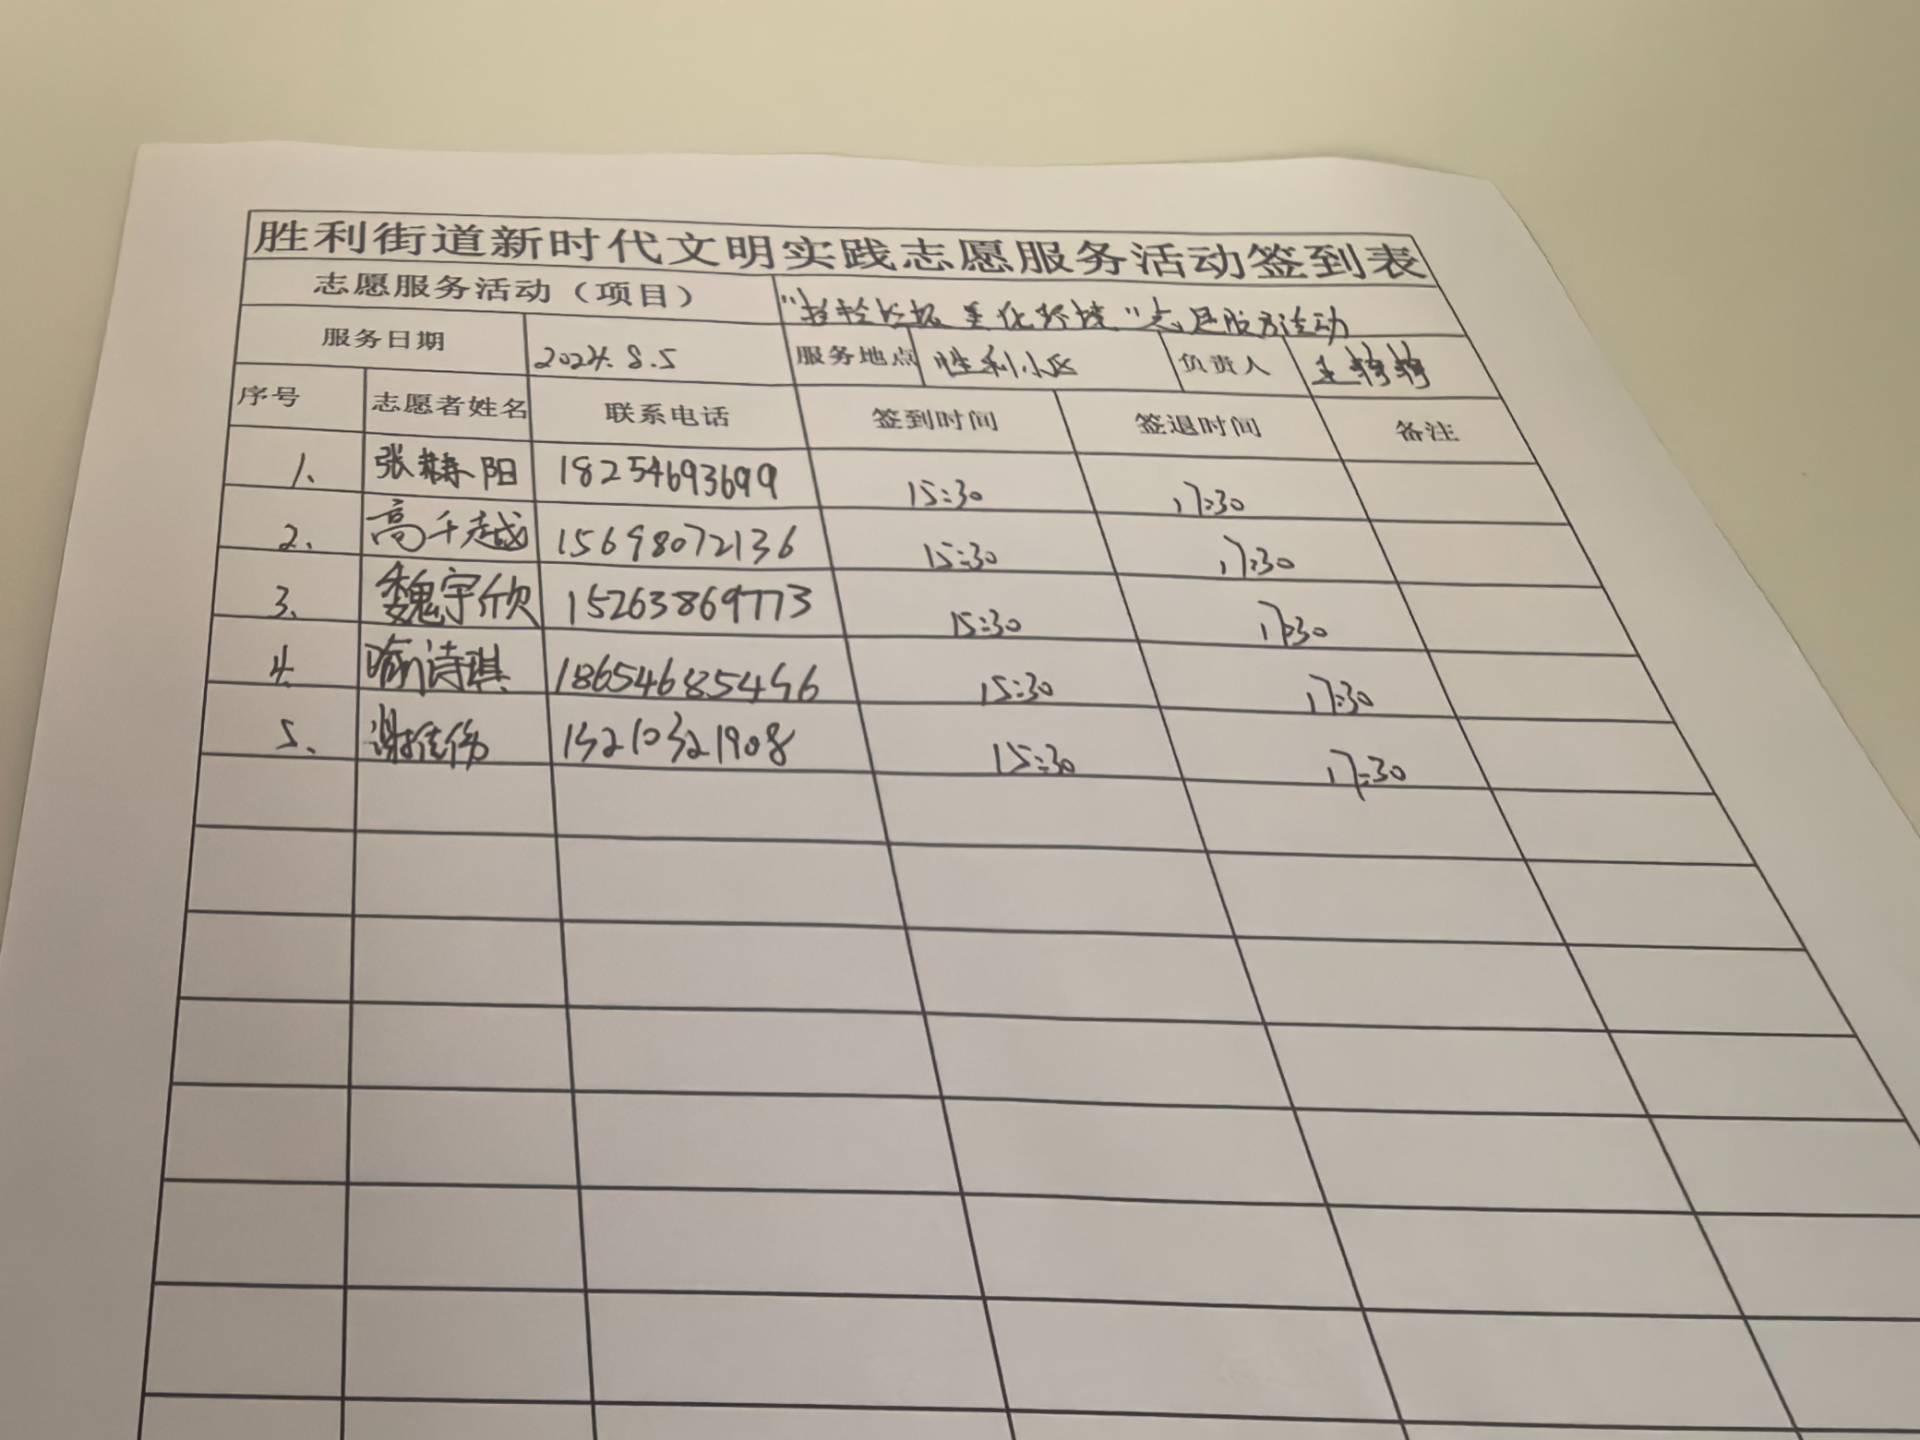 胜利街道新时代文明实践志愿服务活动签到表
志愿服务活动（项目） "捡拾垃圾 美化环境"志愿服务活动
服务日期 2024.8.5 服务地点 胜利小区 负责人 王
序号 志愿者姓名 联系电话 签到时间 签退时间 备注
1、 张赫阳 18254693699 15:30 17:30
2、 高千越 15698072136 15:30 17:30
3、 魏宇欣 15263869773 15:30 17:30
4、 喻诗琪 18654685456 15:30 17:30
5、 谢佳伟 13210321908 15:30 17:30